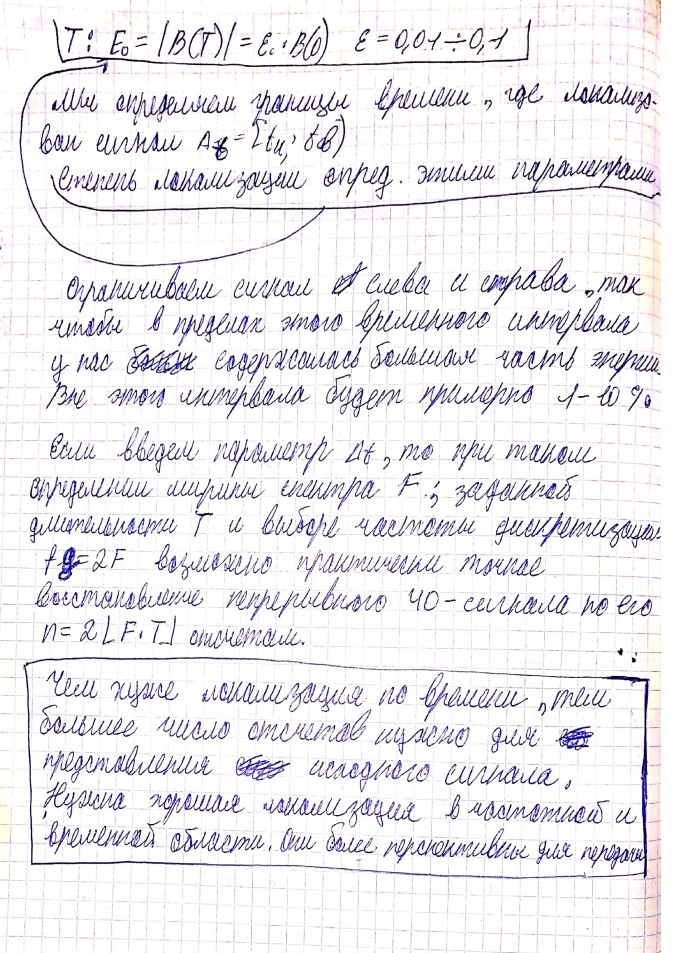 T: E₀ = |B(T)| = ε₀·B(0) ε = 0,01 ÷ 0,1
Мы определяем границы времени, где локализо-
ван сигнал Δt = [tн; tв)
Степень локализации опред. этими параметрами
Ограничиваем сигнал слева и справа, так
чтобы в пределах этого временного интервала
у нас содержалась большая часть энергии.
Вне этого интервала будет примерно 1-10 %
Если введем параметр Δt, то при таком
определении ширины спектра F; заданной
длительности T и выборе частоты дискретизации
fд=2F возможно практически точное
восстановление непрерывного ЧО-сигнала по его
n = 2⌊F·T⌋ отсчетам.
Чем хуже локализация по времени, тем
большее число отсчетов нужно для
представления исходного сигнала.
Нужна хорошая локализация в частотной и
временной области. Они более перспективны для передачи